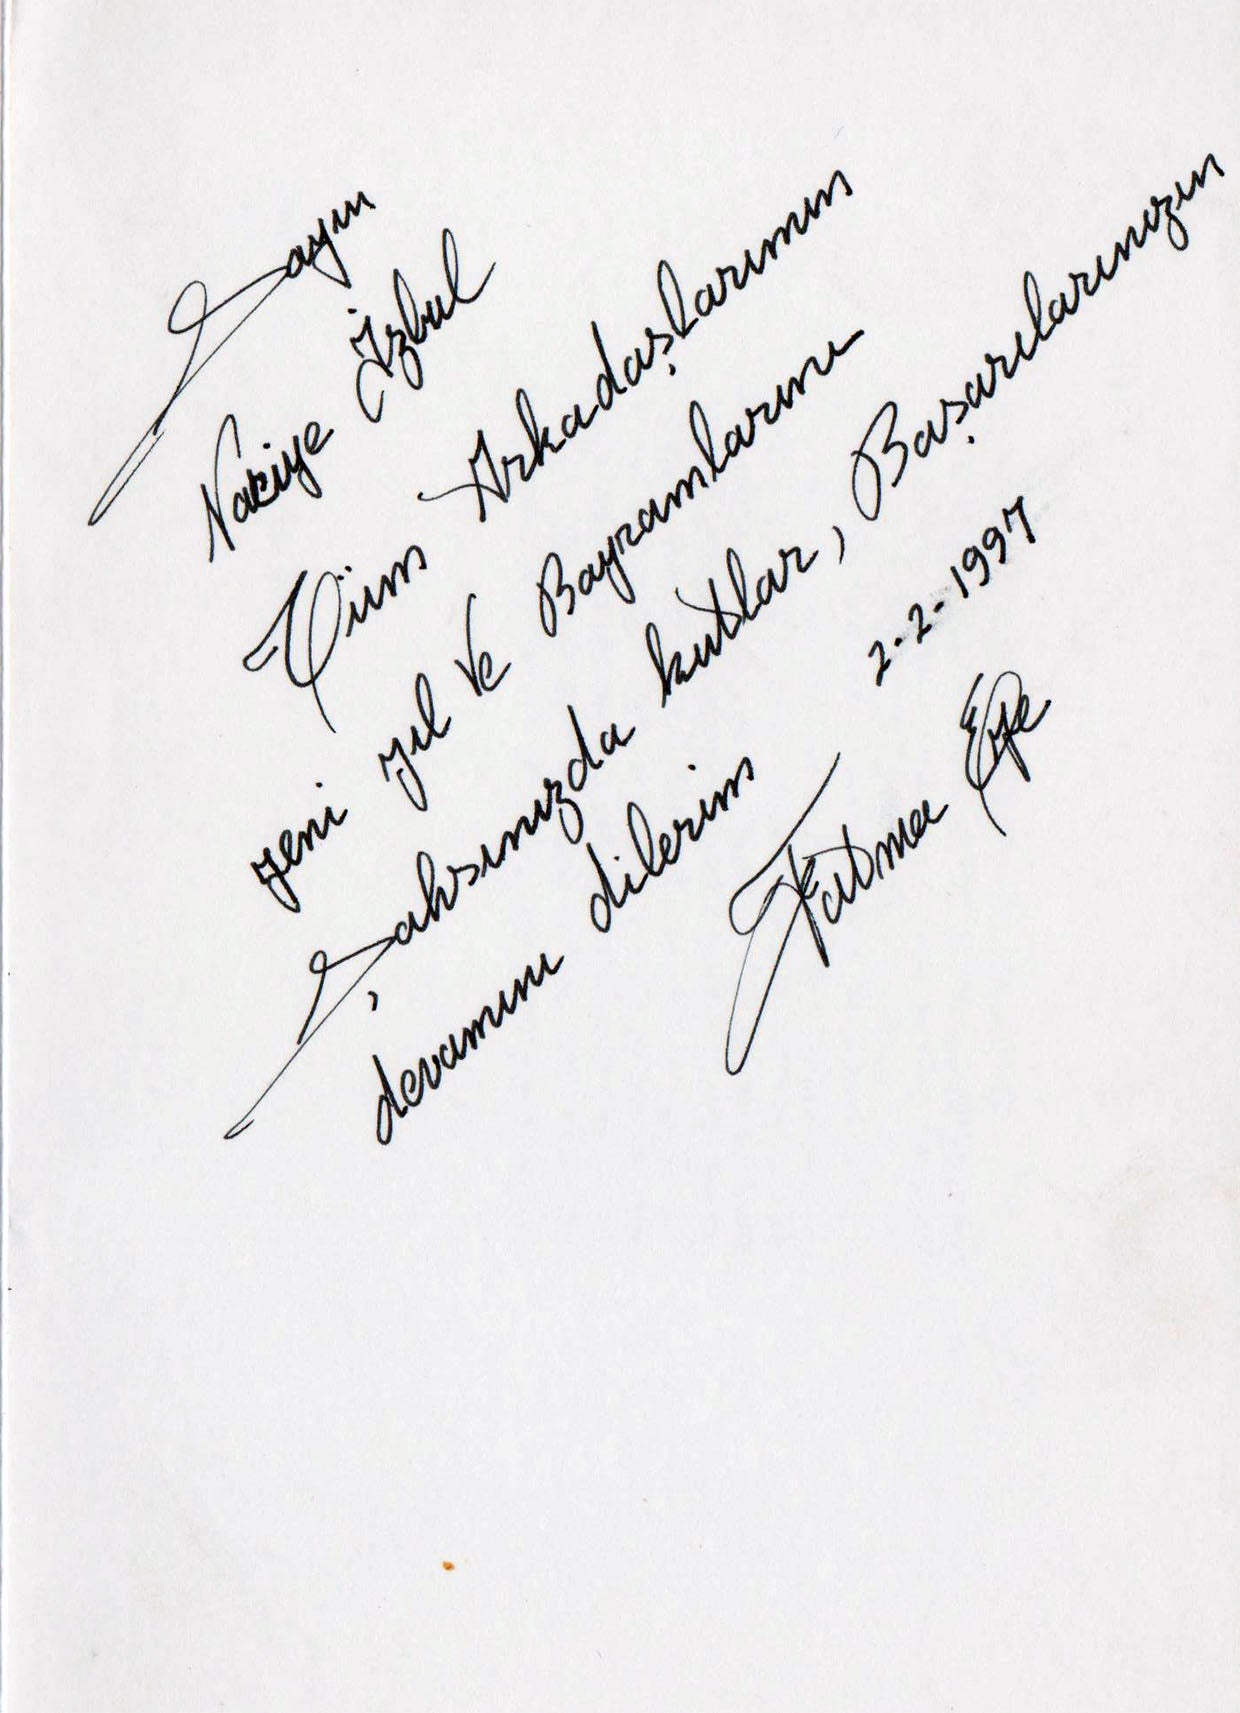 Sayın
Nakiye İzbul
Tüm Arkadaşlarımın
yeni yıl ve Bayramlarını
Şahsınızda kutlar, Başarılarınızın
devamını dilerim
2-2-1997
Fatma Efe